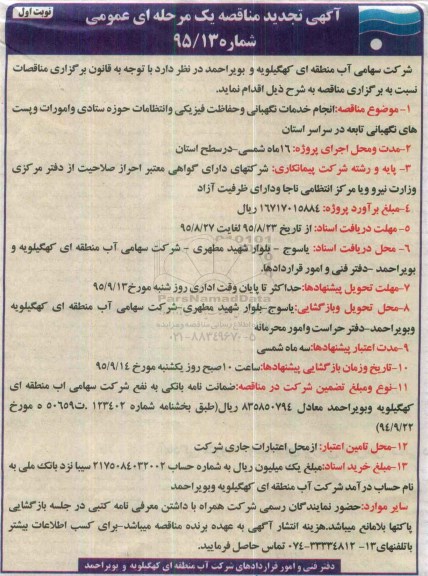 نوبت اول
آگهی تجدید مناقصه یک مرحله ای عمومی
شماره ۹۵/۱۳
شرکت سهامی آب منطقه ای کهگیلویه و بویراحمد در نظر دارد با توجه به قانون برگزاری مناقصات
نسبت به برگزاری مناقصه به شرح ذیل اقدام نماید.
۱-موضوع مناقصه:انجام خدمات نگهبانی وحفاظت فیزیکی وانتظامات حوزه ستادی وامورات وپست
های نگهبانی تابعه در سراسر استان
۲-مدت ومحل اجرای پروژه: ۱۶ماه شمسی-درسطح استان
۳- پایه و رشته شرکت پیمانکاری: شرکتهای دارای گواهی معتبر احراز صلاحیت از دفتر مرکزی
وزارت نیرو ویا مرکز انتظامی ناجا ودارای ظرفیت آزاد
۴-مبلغ برآورد پروژه: ۱۶۷۱۷۰۱۵۸۸۴ ریال
۵- مهلت دریافت اسناد: از تاریخ ۹۵/۸/۲۳ لغایت ۹۵/۸/۲۷
۶- محل دریافت اسناد: یاسوج - بلوار شهید مطهری - شرکت سهامی آب منطقه ای کهگیلویه و
بویراحمد -دفتر فنی و امور قراردادها.
۷-مهلت تحویل پیشنهادها:حداکثر تا پایان وقت اداری روز شنبه مورخ ۹۵/۹/۱۳
۸-محل تحویل وبازگشایی:یاسوج-بلوار شهید مطهری-شرکت سهامی آب منطقه ای کهگیلویه
وبویراحمد-دفتر حراست وامور محرمانه
۹-مدت اعتبار پیشنهادها:سه ماه شمسی
۱۰-تاریخ وزمان بازگشایی پیشنهادها:ساعت ۱۰صبح روز یکشنبه مورخ ۹۵/۹/۱۴
۱۱-نوع ومبلغ تضمین شرکت در مناقصه:ضمانت نامه بانکی به نفع شرکت سهامی اب منطقه ای
کهگیلویه وبویراحمد معادل ۸۳۵۸۵۰۷۹۴ ریال(طبق بخشنامه شماره ۱۲۳۴۰۲ .ت۵۰۶۵۹ ه مورخ
۹۴/۹/۲۲)
۱۲-محل تامین اعتبار: ازمحل اعتبارات جاری شرکت
۱۳-مبلغ خرید اسناد:مبلغ یک میلیون ریال به شماره حساب ۲۱۷۵۰۸۴۰۳۲۰۰۲ سیبا نزد بانک ملی به
نام حساب درآمد شرکت آب منطقه ای کهگیلویه وبویراحمد
سایر موارد:حضور نمایندگان رسمی شرکت همراه با داشتن معرفی نامه کتبی در جلسه بازگشایی
پاکتها بلامانع میباشد.هزینه انتشار آگهی به عهده برنده مناقصه میباشد-برای کسب اطلاعات بیشتر
باتلفنهای۱۳- ۳۳۳۳۴۸۱۲-۰۷۴ تماس حاصل فرمایید.
دفتر فنی و امور قراردادهای شرکت آب منطقه ای کهگیلویه و بویراحمد
ParsNamadData
۰۲۱-۸۸۳۴۹۶۷۰-۵